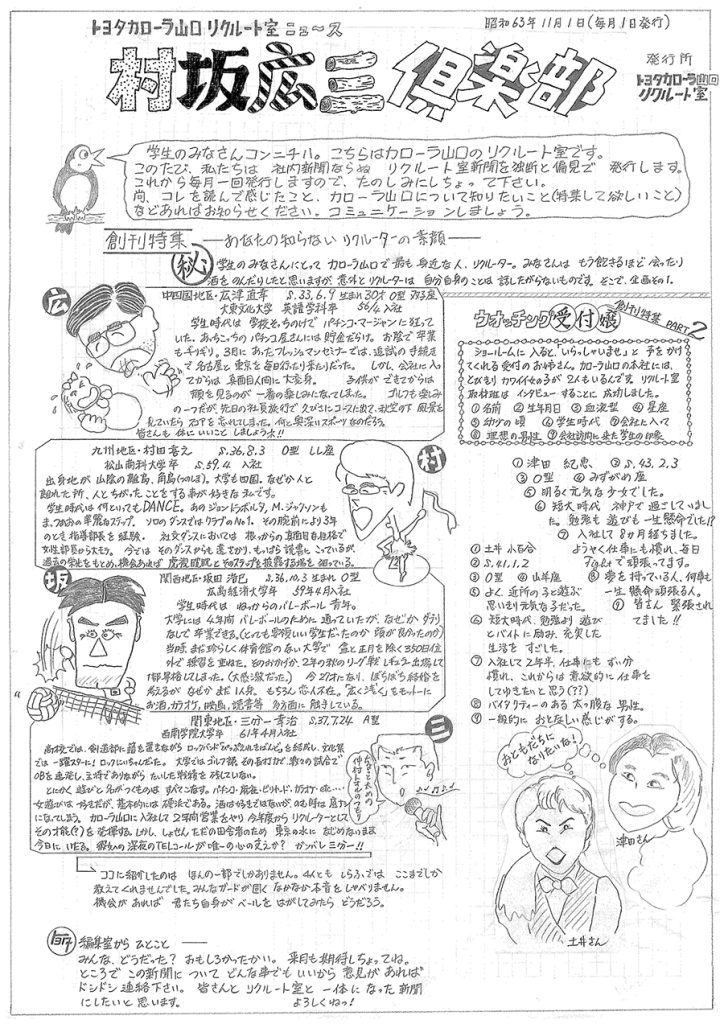 トヨタカローラ山口 リクルート室 ニュース
昭和63年11月1日(毎月1日発行)
村坂広三倶楽部
発行所
トヨタカローラ山口
リクルート室
学生のみなさんコンニチハ。こちらはカローラ山口のリクルート室です。
このたび、私たちは 社内新聞ならぬ リクルート室新聞を独断と偏見で 発行します。
これから毎月一回発行しますので、たのしみにしちょって下さい。
尚、コレを読んで感じたこと、カローラ山口について知りたいこと(特集して欲しいこと)
などあればお知らせください。コミュニケーションしましょう。
創刊特集 ――あなたの知らない リクルーターの素顔――
㊙ 学生のみなさんにとって カローラ山口で最も身近な人、リクルーター。みなさんは もう飽きるほど 会ったり
酒をのんだりしたと思いますが、意外とリクルーターは 自分自身のことは 話したがらないものです。そこで、企画その1。
広
中四国地区・広津直幸 S.33.6.9 生まれ 30才 O型 ふたご座
大東文化大学 英語学科卒 56/4.入社
学生時代は 学校そっちのけで パチンコ・マージャンに狂って
いた。あちこちのパチンコ屋さんには貯金だらけ。お陰で 卒業
もギリギリ。3月に あったフレッシュマンセミナーでは、追試の手続き
で 名古屋と東京を毎日行ったり来たりだった。 しかし、会社に入っ
てからは 真面目人間に大変身。 子供ができてからは
顔を見るのが 一番の楽しみになってしまった。 ゴルフも楽しみ
の一つだが 先日の社員旅行で 久びさにコースに出て、秋空の下 風景を
見ていたら スコアを忘れてしまった。何と奥深いスポーツなのだろう。
皆さんも 体にいいこと しましょうネ!!
村
九州地区・村田 S.36.8.3 O型 しし座
松山商科大学卒 S.59.4 入社
出身地が 山陰の離島、角島(つのしま)。大学も四国。なぜか 人と
離れた所、人とちがったことをする事が好きな 私です。
学生時代は 何といってもDANCE。あのジョン・トラボルタ、M.ジャクソンも
まっ青の華麗なステップ。 ソロのダンスではクラブのNo.1。その腕前により3年
のとき指導部長を経験。 社交ダンスにおいては 根っからの真面目な性格で
女性部員から大モテ。 今では そのダンスからも遠ざかり、もっぱら 読書に こっているが、
過去の学生をもとめ、機会あれば 虎視眈眈とそのステップを披露する場を狙っている。
坂
関西地区・坂田浩巳 S.36.10.3 生まれ O型
広島経済大学卒 59年4月入社
学生時代は ねっからのバレーボール 青年。
大学には 4年間 バレーボールのために 通っていたが、なぜだか ダブリ
なしで 卒業できる。(とっても要領いい学生だったのか 頭が良かったのか)
当時、まだ珍らしく 体育館のない大学で 盆と正月を除く350日位
外で 練習を重ねた。そのおかげか、2年の秋のリーグ戦にレギュラー出場して
1部昇格してしまった。(大感激だった。) 今 27才になり、ぼちぼち結婚を
考えるが なぜか まだ 1人身。 もちろん 恋人不在。「広く浅く」をモットーに
お酒、カラオケ、映画、読書等 多方面に 触手している。
三
関東地区・三分一孝治 S.37.7.24 A型
西南学院大学卒 61年4月入社
高校では、剣道部に籍を置きながら ロックバンドを結成し、文化祭
では一躍スターに! ロックにいちゃんだった。 大学ではゴルフ部、その長けた技で、数々の試合で
OBを追い越し、主将でありながら たいした戦績を残していない。
とにかく 遊びと名がつくものは すべてこなす。パチンコ・麻雀・ビリヤード・カラオケ etc…
女遊びは 好きだが、基本的には硬派である。酒は好きではないが、のむ時は 底ナシ
になってしまう。 カローラ山口に入社して 2年間営業をやり 今年度から リクルーターとして
その才能(?)を発揮する。しかし、しょせん ただの田舎者のため 東京の水に なじめないまま
今日にいたる。彼女への深夜のTELコールが唯一の心の支えか? ガンバレ三分一!!
ちょっと太めの
仲村トオルのつもり
ココに紹介したのは ほんの一部でしかありません。4人とも しらふでは ここまでしか
教えてくれませんでした。みんなガードが固く なかなか本音をしゃべりません。
機会が あれば 君たち自身が ベールを はがしてみたら どうだろう。
ウオッチング受付嬢 創刊特集 PART2
ショールームに入ると、「いらっしゃいませ」と 声をかけ
てくれる受付のお姉さん。カローラ山口の本社には、
とびきり カワイイ女の子が 2人もいるんです。リクルート室
取材班は インタビューすることに 成功しました。
①名前 ②生年月日 ③血液型 ④星座
⑤幼少の頃 ⑥学生時代 ⑦会社に入って
⑧理想の男性 ⑨会社訪問に来た学生の印象
①津田 紀恵 ②S.43.2.3
③O型 ④みずがめ座
⑤明るく元気な少女でした。
⑥短大時代 神戸で過ごしていまし
た。勉強も 遊びも 一生懸命でした!?
⑦入社して 8ヶ月経ちました。
ようやく仕事にも慣れ、毎日
Fightで頑張ってます。
⑧夢を持っている人、何事も
一生懸命頑張る人。
⑨皆さん 緊張され
てました!!
①土井 小百合
②S.41.1.2
③O型 ④山羊座
⑤よく、近所の子と遊ぶ
思いきり元気な子だった。
⑥短大時代、勉強より遊び
とバイトに励み、充実した
生活をすごした。
⑦入社して2年半、仕事にも ずい分
慣れ、これからは意欲的に仕事を
してゆきたいと思う(??)
⑧バイタリティーのある 太っ腹な男性。
⑨一般的に おとなしい感じがする。
おともだちに
なりたいな!
津田さん
土井さん
トヨタ 編集室から ひとこと ――
みんな、どうだった? おもしろかったかい。 来月も期待しちょってね。
ところで この新聞に ついて どんな事でも いいから 意見があれば
ドシドシ 連絡下さい。 皆さんと リクルート室と 一体に なった 新聞
にしたいと 思います。 よろしくねっ!